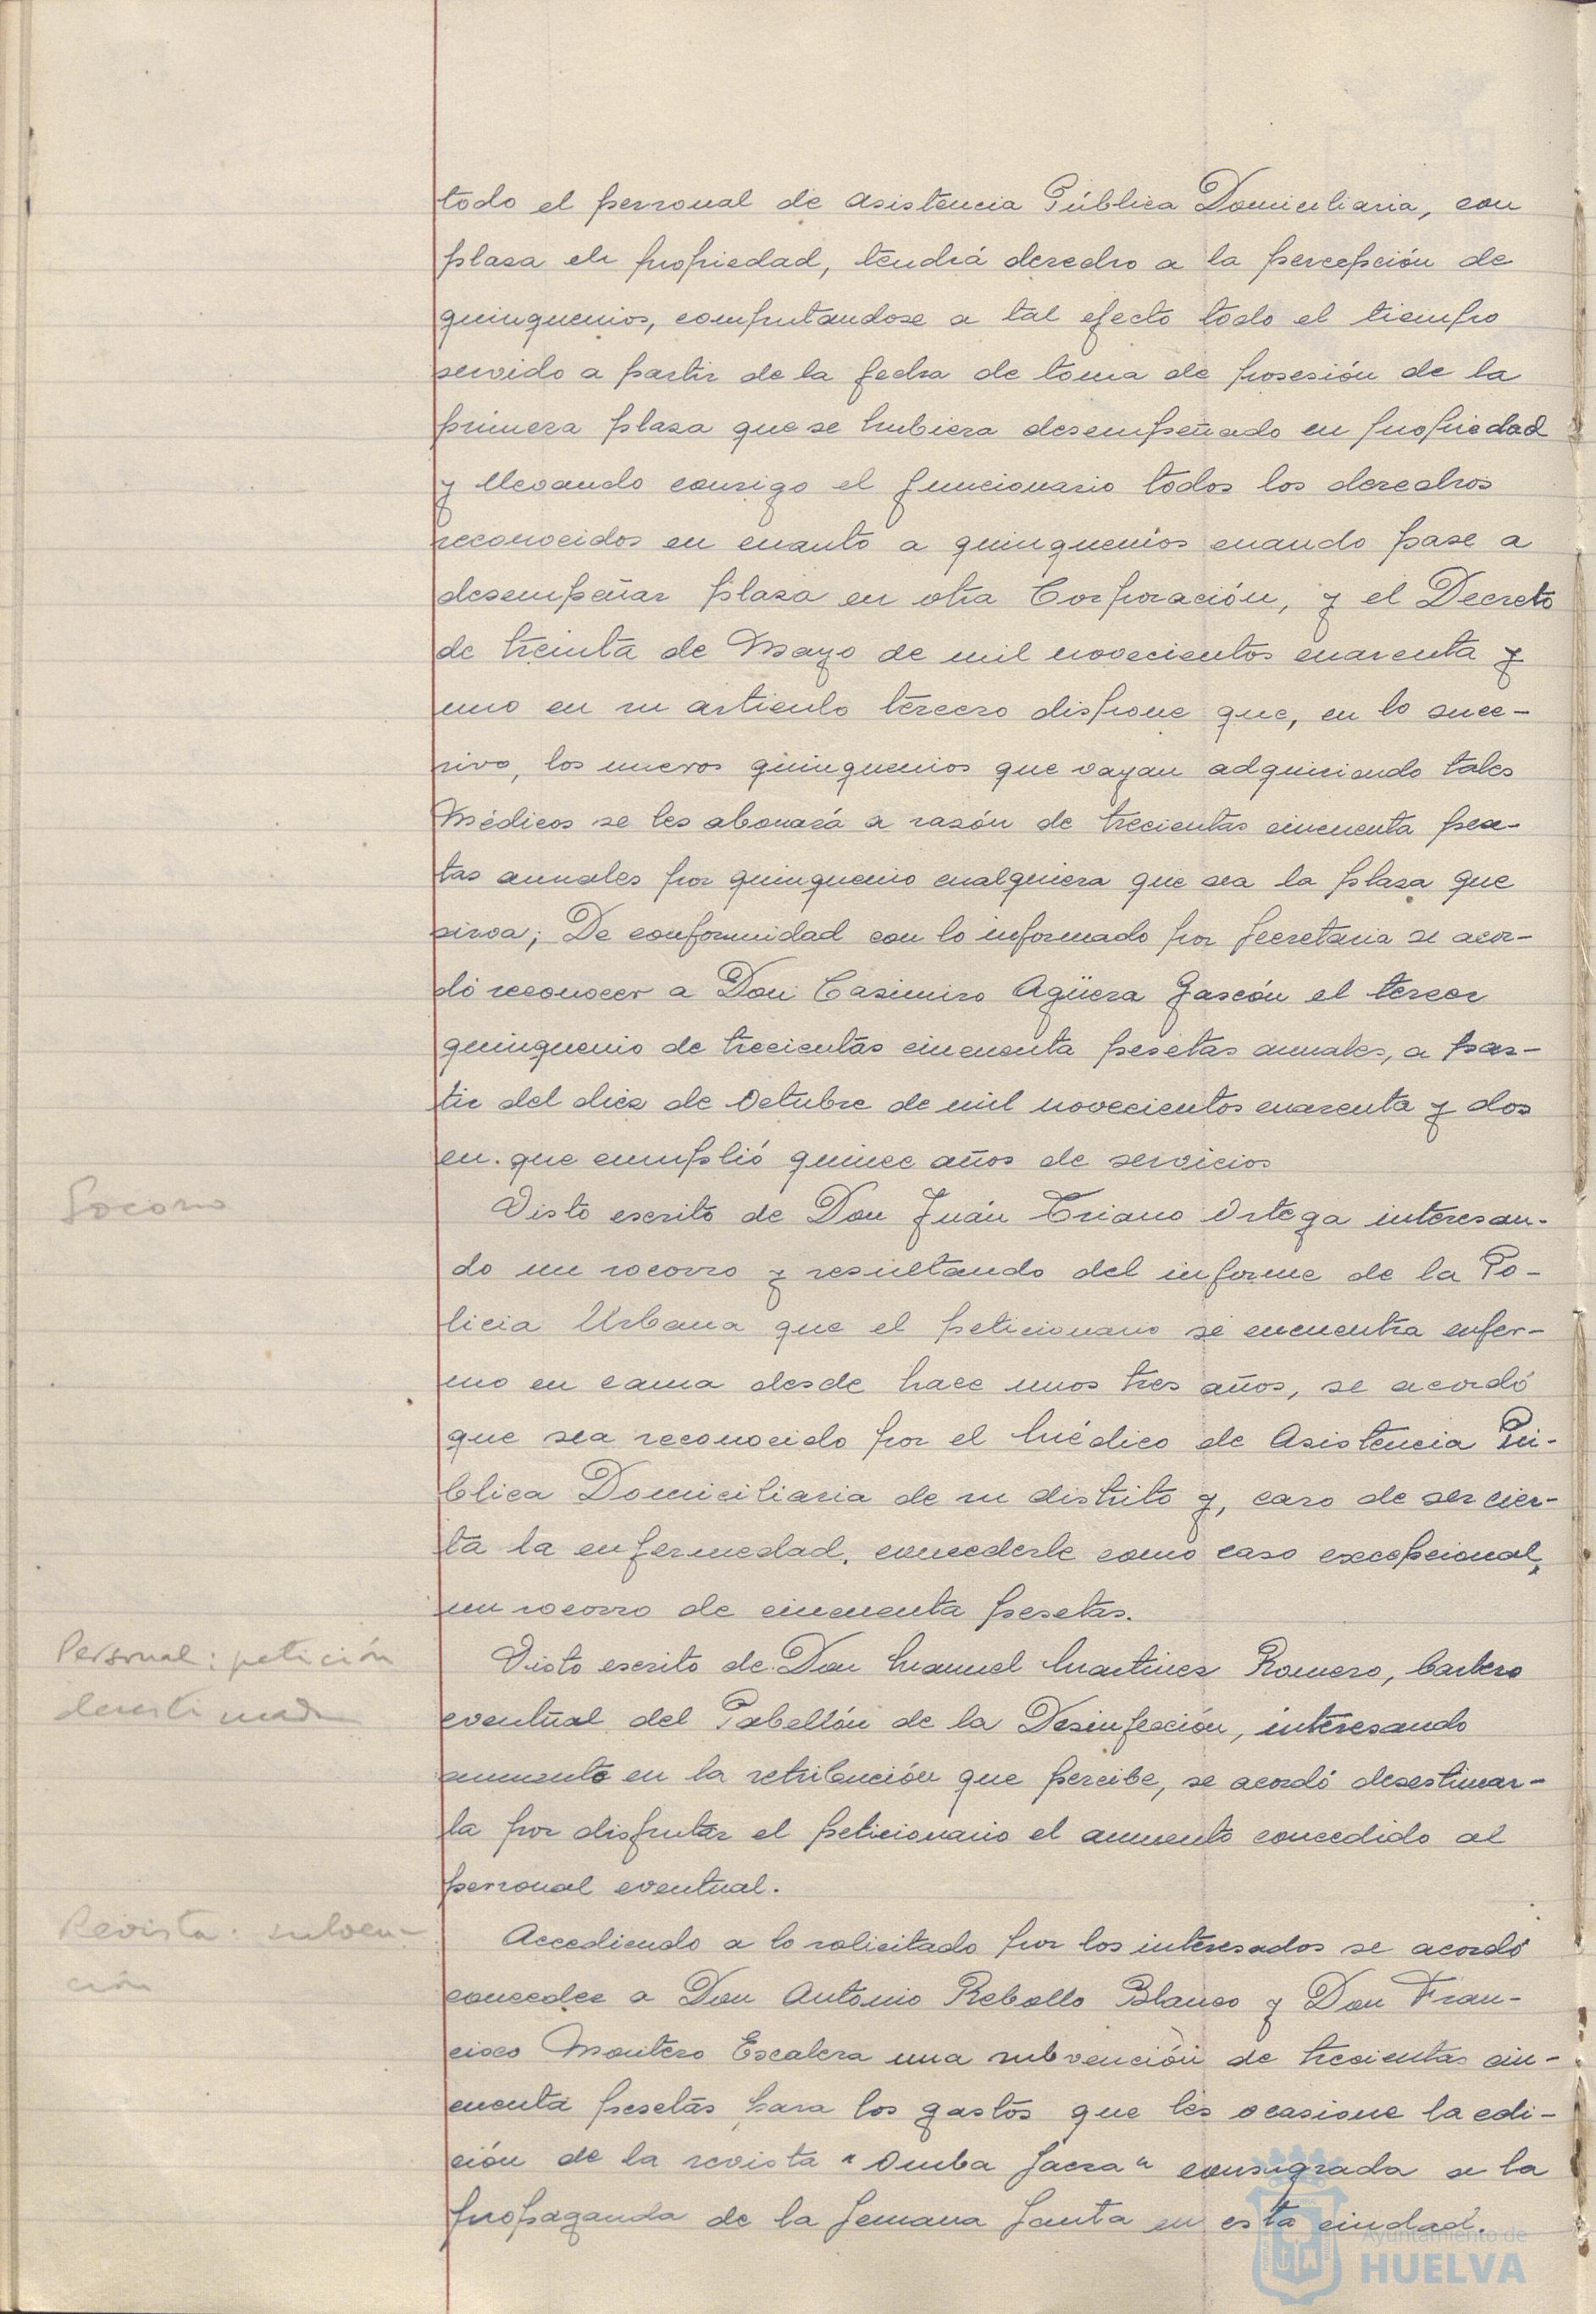 todo el personal de Asistencia Pública Domiciliaria, con
plaza en propiedad, tendrá derecho a la percepción de
quinquenios, computandose a tal efecto todo el tiempo
servido a partir de la fecha de toma de posesión de la
primera plaza que se hubiera desempeñado en propiedad
y llevando consigo el funcionario todos los derechos
reconocidos en cuanto a quinquenios cuando pase a
desempeñar plaza en otra Corporación, y el Decreto
de treinta de Mayo de mil novecientos cuarenta y
uno en su articulo tercero dispone que, en lo suce-
sivo, los nuevos quinquenios que vayan adquiriendo tales
Médicos se les abonará a razón de trecientas cincuenta pese-
tas anuales por quinquenio cualquiera que sea la plaza que
sirva; De conformidad con lo informado por Secretaria se acor-
dó reconocer a Don Casimiro Agüera Gascón el tercer
quinquenio de trecientas cincuenta pesetas anuales, a par-
tir del diez de Octubre de mil novecientos cuarenta y dos
en que cumplió quince años de servicios
Socorro
Visto escrito de Don Juán Triano Ortega interesan-
do un socorro y resultando del informe de la Po-
licia Urbana que el peticionario se encuentra enfer-
mo en cama desde hace unos tres años, se acordó
que sea reconocido por el Médico de Asistencia Pú-
blica Domiciliaria de su distrito y, caso de ser cier-
ta la enfermedad, concederle como caso excepcional,
un socorro de cincuenta pesetas.
Personal: petición
desestimada
Visto escrito de Don Manuel Martinez Romero, Cartero
eventual del Pabellón de la Desinfección, interesando
aumento en la retribución que percibe, se acordó desestimar-
la por disfrutar el peticionario el aumento concedido al
personal eventual.
Revista: subven-
ción
Accediendo a lo solicitado por los interesados se acordó
conceder a Don Antonio Rebollo Blanco y Don Fran-
cisco Montero Escalera una subvención de trecientas cin-
cuenta pesetas para los gastos que les ocasione la edi-
ción de la revista "Onuba Sacra" consigrada a la
propaganda de la Semana Santa en esta ciudad.
Ayuntamiento de
HUELVA